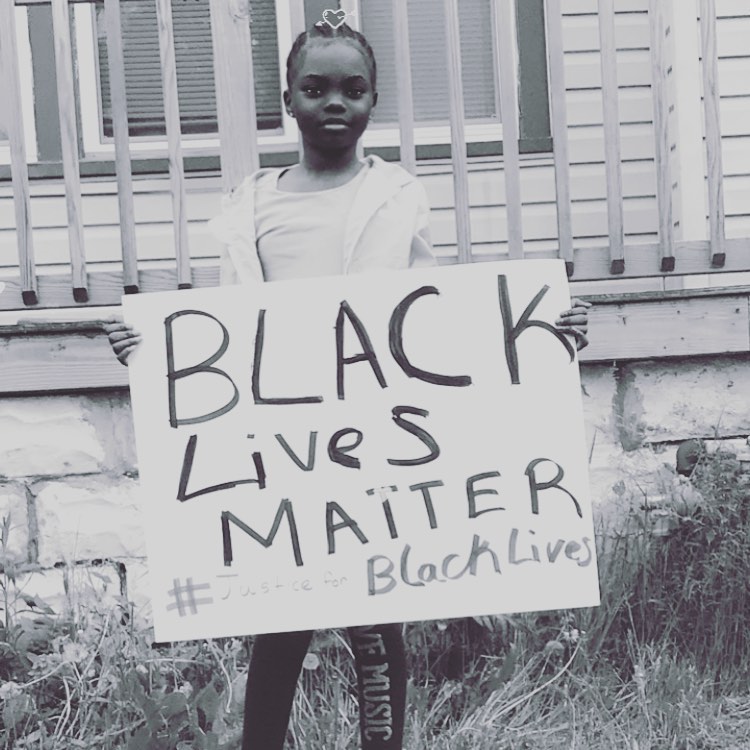 BLACK
Lives
MATTER
#Justice for Black Lives
VE MUSIC